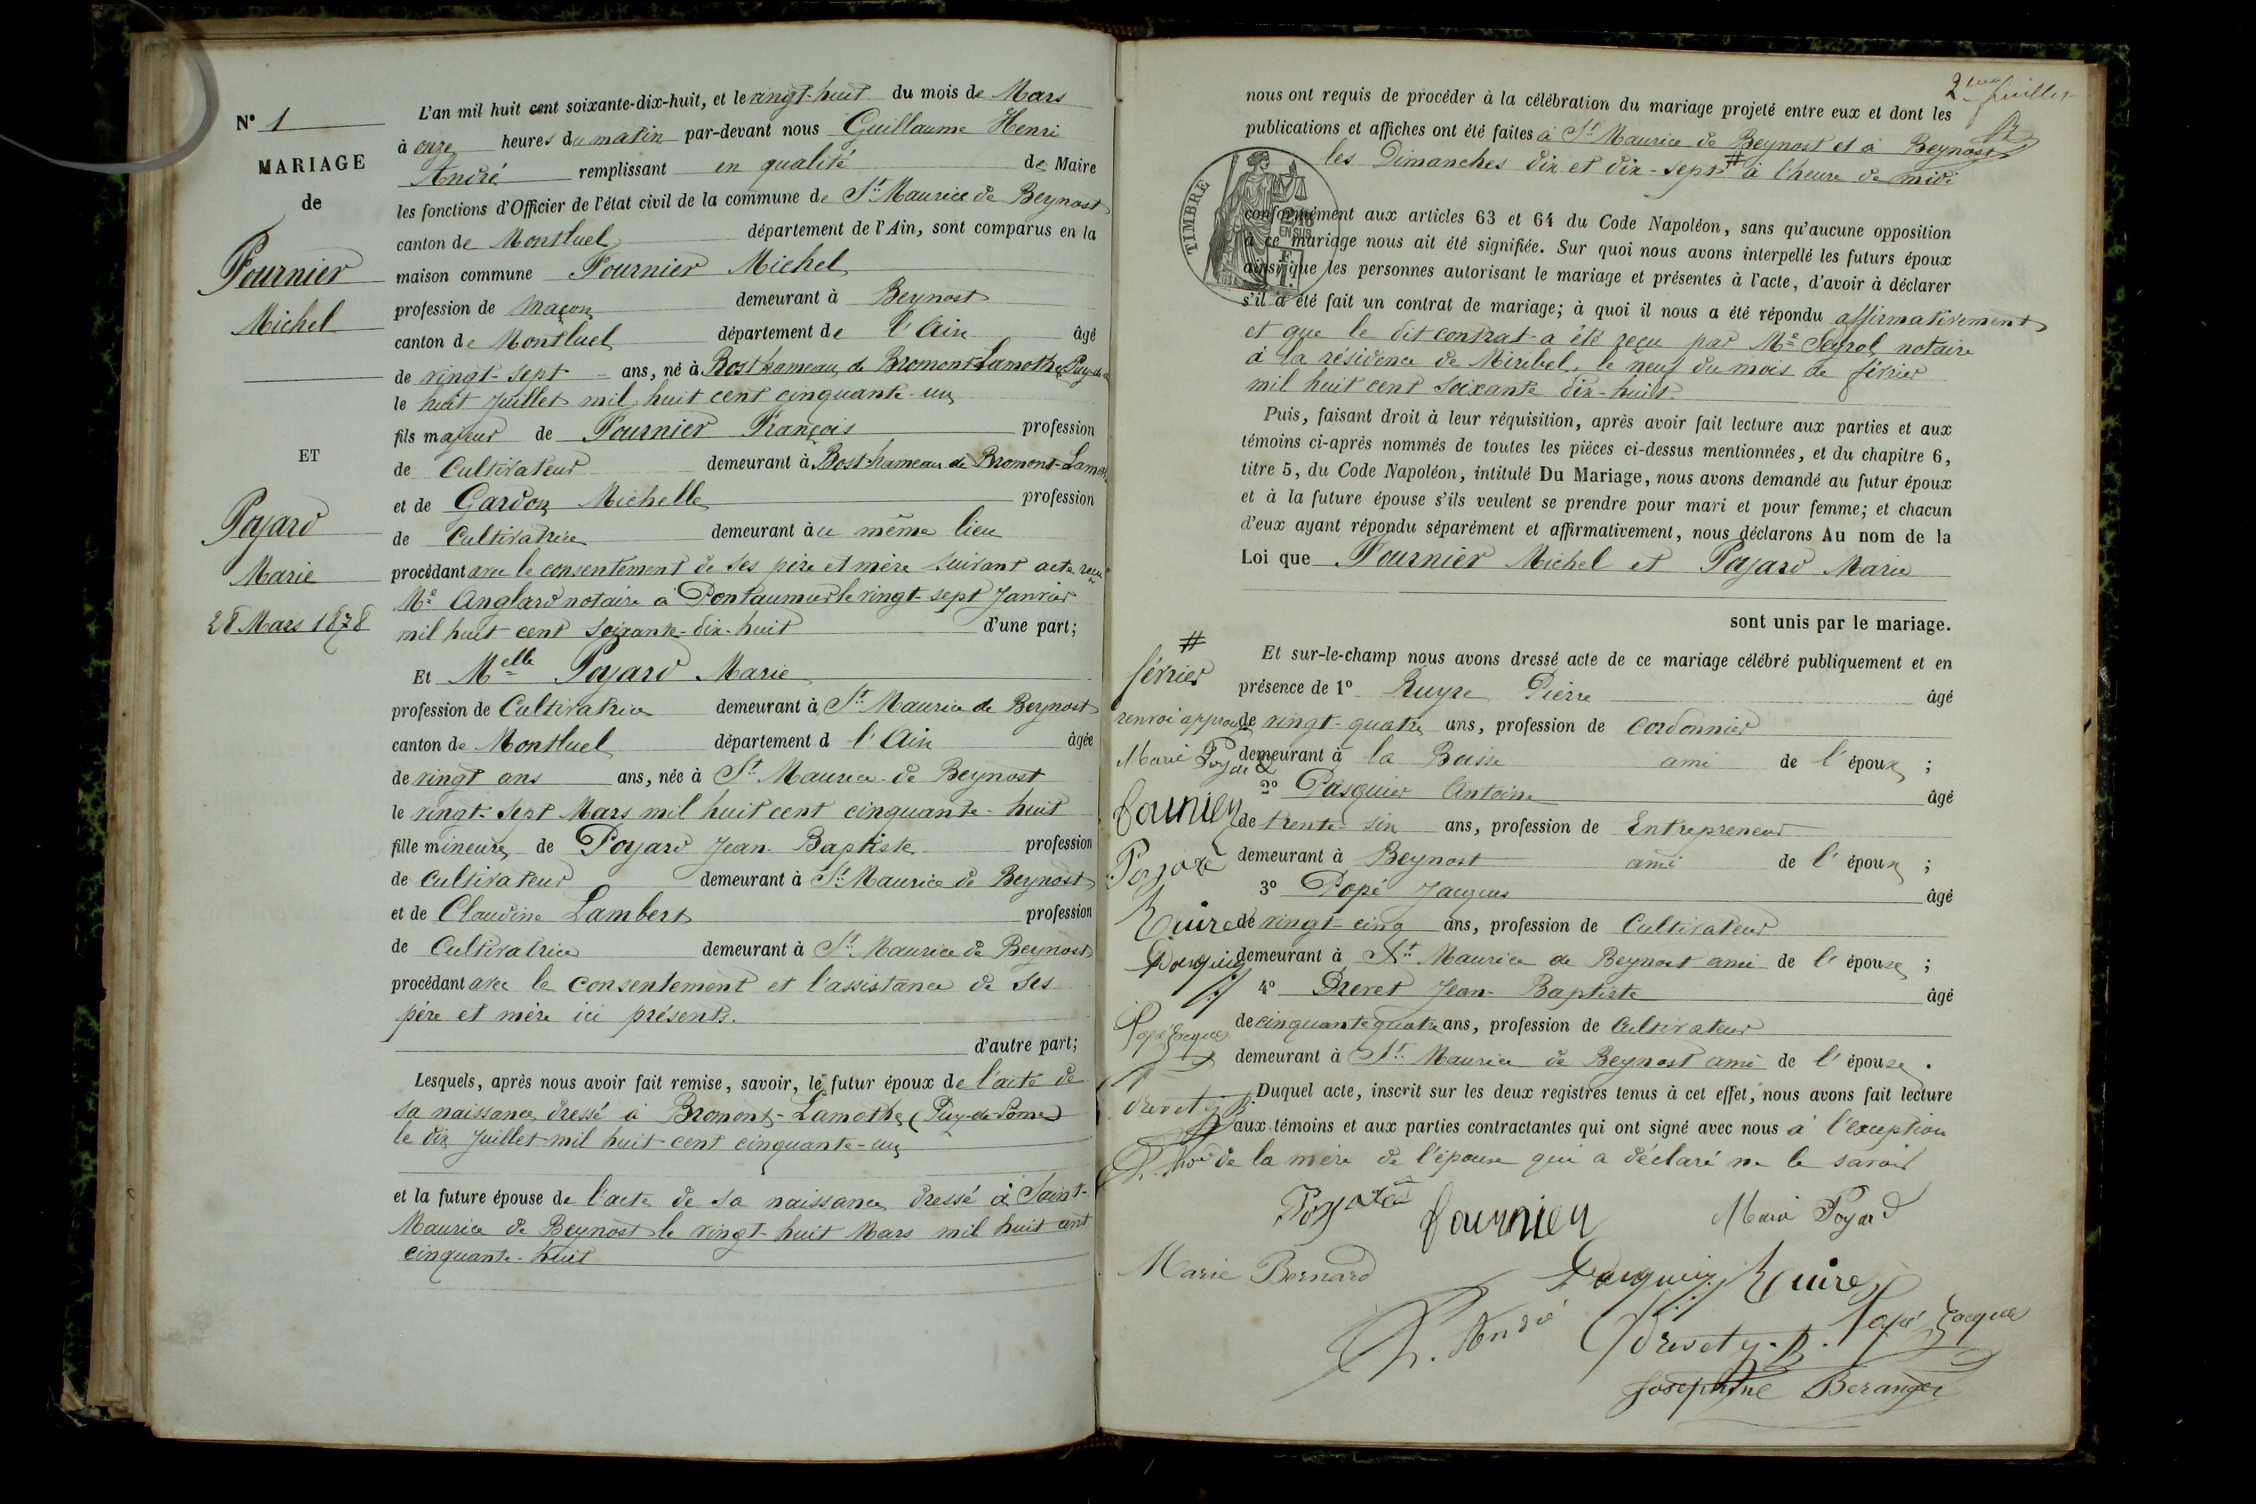 N° 1
MARIAGE
de
Fournier
Michel
ET
Poyard
Marie
28 Mars 1878
L'an mil huit cent soixante-dix-huit, et le vingt-huit du mois de Mars
à onze heures du matin par-devant nous Guillaume Henri
André remplissant en qualité de Maire
les fonctions d'Officier de l'état civil de la commune de St Maurice de Beynost
canton de Montluel département de l'Ain, sont comparus en la
maison commune Fournier Michel
profession de maçon demeurant à Beynost
canton de Montluel département de l'Ain âgé
de vingt-sept ans, né à Bost hameau de Bromont-Lamothe Puy-de-
le huit Juillet mil huit cent cinquante-un
fils majeur de Fournier François profession
de Cultivateur demeurant à Bost-hameau de Bromont-Lamothe
et de Gardon Michelle profession
de Cultivatrice demeurant au même lieu
procédant avec le consentement de ses père et mère suivant acte reçu
Me Anglard notaire à Pontaumur le vingt-sept Janvier
mil huit cent soixante-dix-huit d'une part;
Et Melle Poyard Marie
profession de Cultivatrice demeurant à St Maurice de Beynost
canton de Montluel département d l'Ain âgée
de vingt ans ans, née à St Maurice-de Beynost
le vingt-sept Mars mil huit cent cinquante-huit
fille mineure de Poyard Jean-Baptiste profession
de Cultivateur demeurant à St Maurice de Beynost
et de Claudine Lambert profession
de Cultivatrice demeurant à St Maurice de Beynost
procédant avec le consentement et l'assistance de ses
père et mère ici présents.
d'autre part;
Lesquels, après nous avoir fait remise, savoir, le futur époux de l'acte de
sa naissance dressé à Bromont-Lamothe (Puy-de-Dôme)
le dix Juillet mil huit cent cinquante-un
et la future épouse de l'acte de sa naissance dressé à Saint-
Maurice de Beynost le vingt-huit Mars mil huit cent
cinquante-huit
2me feuillet
nous ont requis de procéder à la célébration du mariage projeté entre eux et dont les
publications et affiches ont été faites à St Maurice de Beynost et à Beynost
les Dimanches dix et dix-sept # à l'heure de midi
TIMBRE
2/10
EN SUS
conformément aux articles 63 et 64 du Code Napoléon, sans qu'aucune opposition
à ce mariage nous ait été signifiée. Sur quoi nous avons interpellé les futurs époux
ainsi que les personnes autorisant le mariage et présentes à l'acte, d'avoir à déclarer
s'il a été fait un contrat de mariage; à quoi il nous a été répondu affirmativement
et que le dit contrat a été reçu par Me notaire
à la résidence de Miribel, le neuf du mois de février
mil huit cent soixante dix-huit.
Puis, faisant droit à leur réquisition, après avoir fait lecture aux parties et aux
témoins ci-après nommés de toutes les pièces ci-dessus mentionnées, et du chapitre 6,
titre 5, du Code Napoléon, intitulé Du Mariage, nous avons demandé au futur époux
et à la future épouse s'ils veulent se prendre pour mari et pour femme; et chacun
d'eux ayant répondu séparément et affirmativement, nous déclarons Au nom de la
Loi que Fournier Michel et Poyard Marie
sont unis par le mariage.
Et sur-le-champ nous avons dressé acte de ce mariage célébré publiquement et en
présence de 1° Ruyre Pierre âgé
de vingt-quatre ans, profession de cordonnier
demeurant à la Boisse ami de l'époux ;
2° Pasquier Antoine âgé
de trente-six ans, profession de Entrepreneur
demeurant à Beynost ami de l'époux ;
3° Popé Jacques âgé
de vingt-cinq ans, profession de Cultivateur
demeurant à St Maurice de Beynost ami de l'épouse ;
4° Drevet Jean-Baptiste âgé
de cinquante quatre ans, profession de Cultivateur
demeurant à St Maurice de Beynost ami de l'épouse .
Duquel acte, inscrit sur les deux registres tenus à cet effet, nous avons fait lecture
aux témoins et aux parties contractantes qui ont signé avec nous à l'exception
de la mère de l'épouse qui a déclaré ne le savoir
#
février
renvoi approuvé
Marie Poyard
fournier
Poyard
Ruire
Pasquier
Popé Jacques
Drevet j. B.
h. André
Poyard
fournier
Marie Poyard
Marie Bernard
Pasquier
Ruire
h. André
Drevet j. B.
Popé Jacques
Josephine Beranger